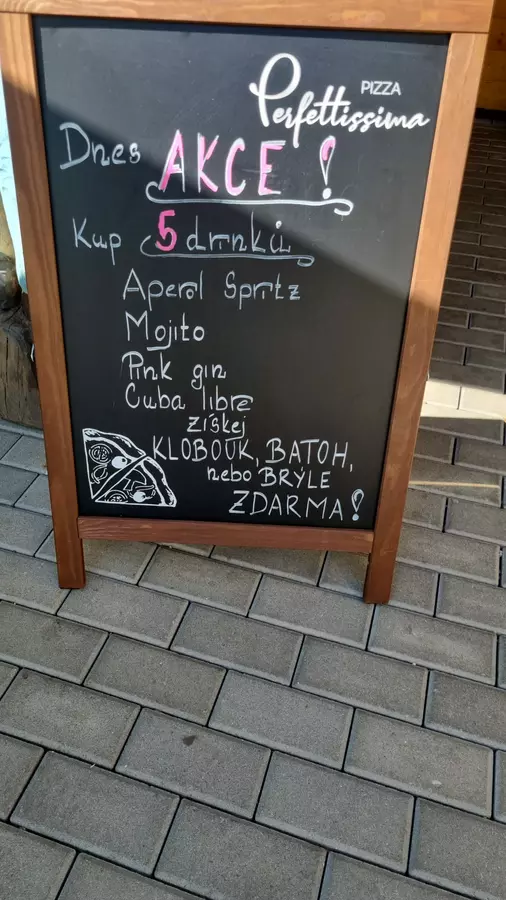 PIZZA
Perfettissima
Dnes AKCE!
Kup 5 drinků
Aperol Spritz
Mojito
Pink gin
Cuba libre
získej
KLOBOUK, BATOH,
nebo BRÝLE
ZDARMA!